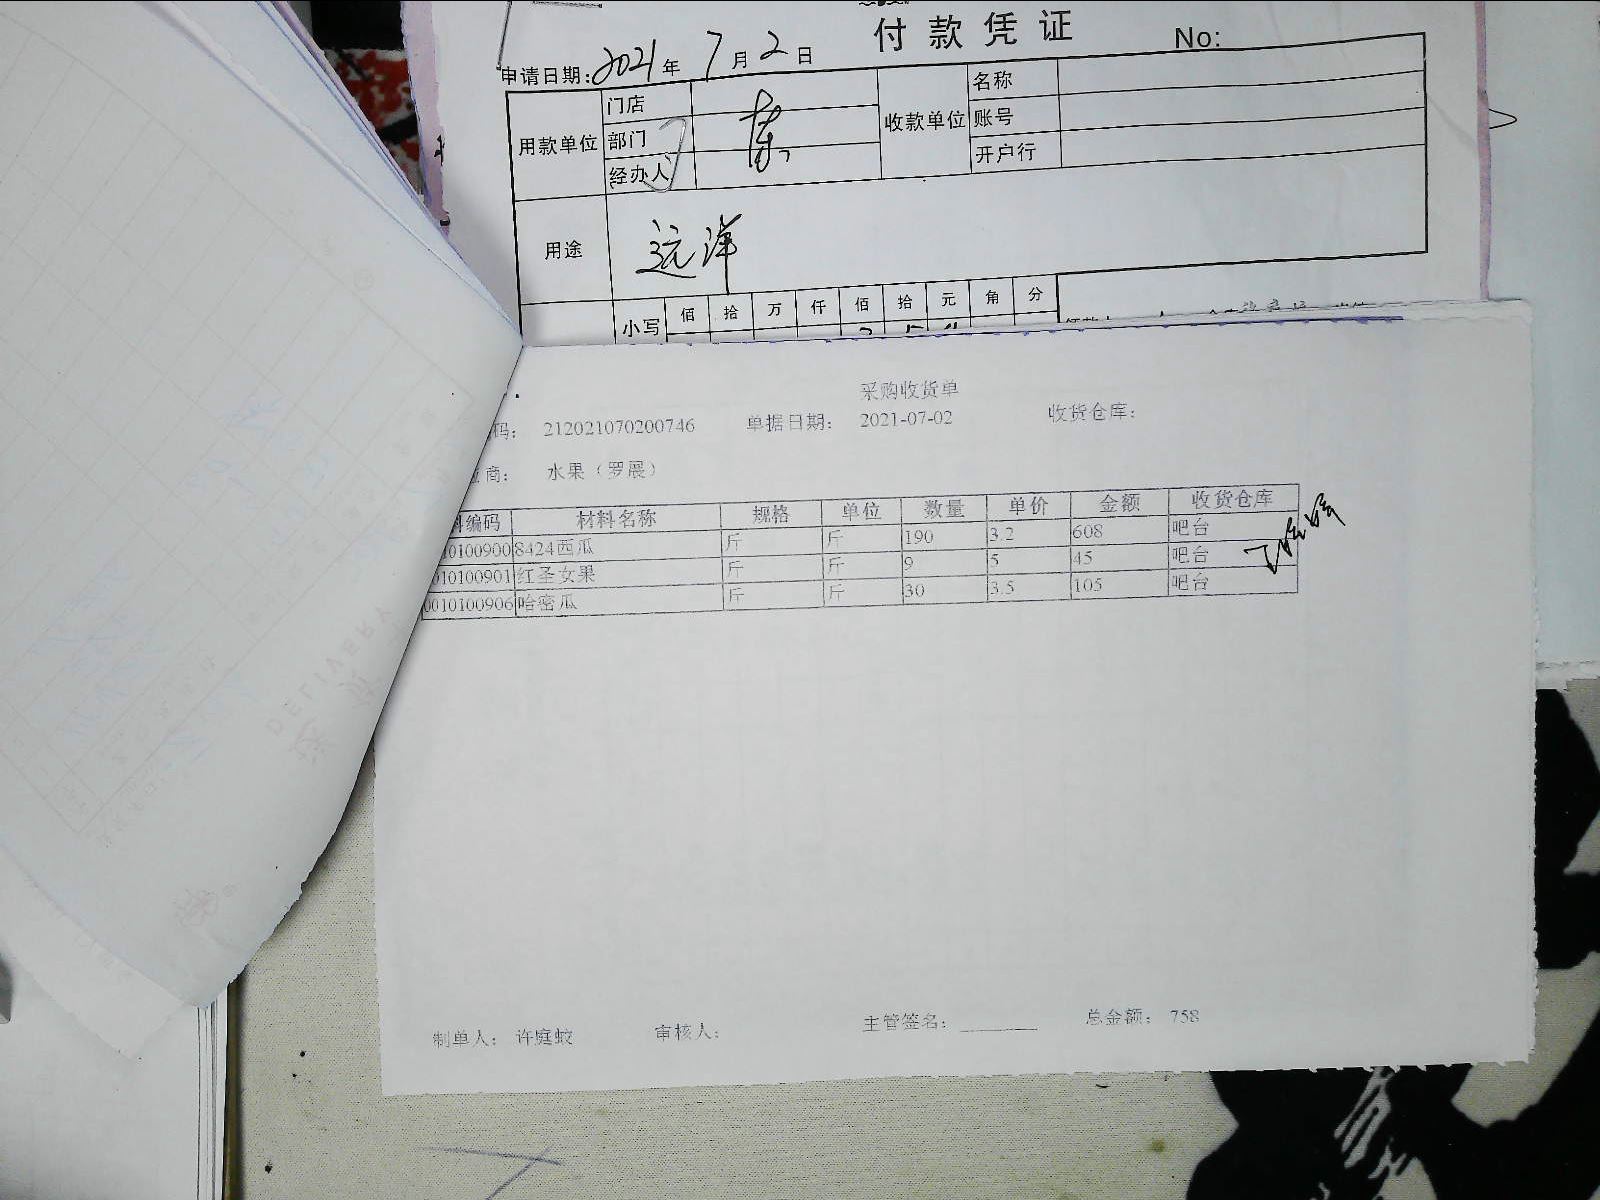 付款凭证
No:
申请日期: 2021 年 7 月 2 日
用款单位 门店 部门 经办人 收款单位 名称 账号 开户行
用途 远洋
小写 佰 拾 万 仟 佰 拾 元 角 分
采购收货单
码: 212021070200746 单据日期: 2021-07-02 收货仓库:
商: 水果（罗晨）
编码 材料名称 规格 单位 数量 单价 金额 收货仓库
10100900 8424西瓜 斤 斤 190 3.2 608 吧台
010100901 红圣女果 斤 斤 9 5 45 吧台
0010100906 哈密瓜 斤 斤 30 3.5 105 吧台
制单人: 许庭蛟 审核人: 主管签名: 总金额: 758
DELIVERY